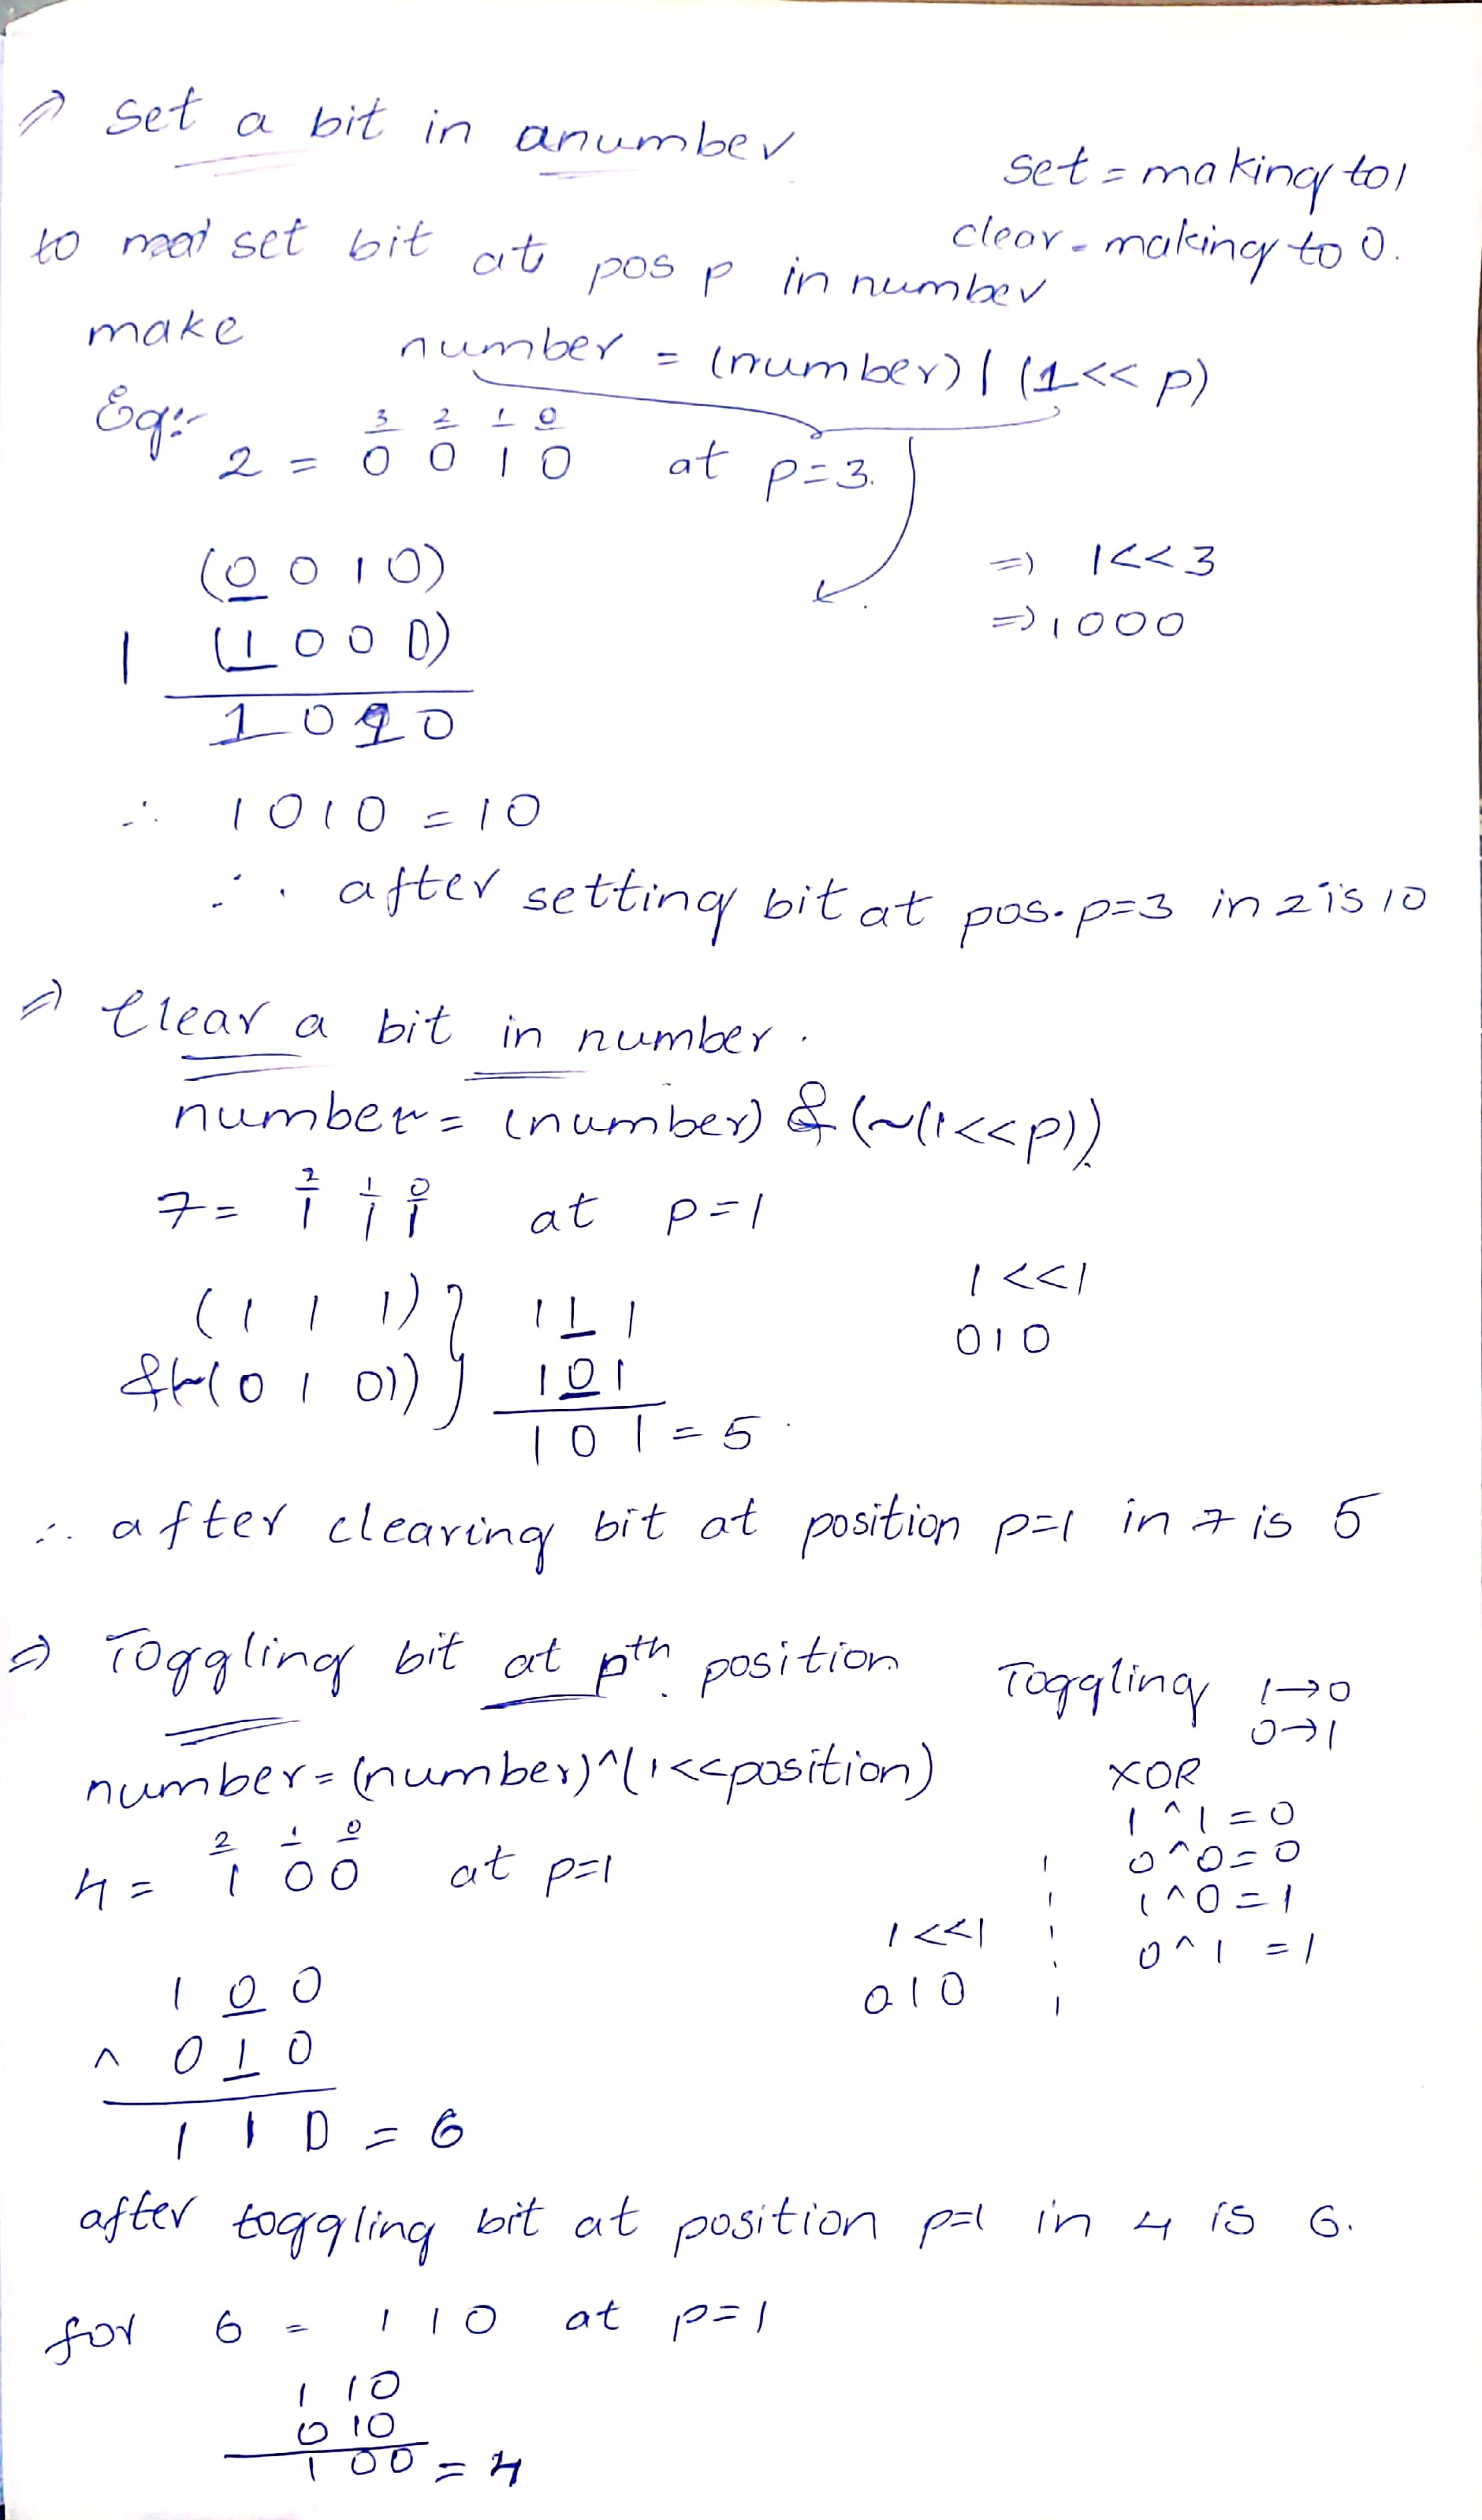 ⇒ set a bit in anumber
set = making to 1
clear = making to 0.
to set bit at pos p in number
make number = (number) | (1<<p)
Eg:-
3 2 1 0
2 = 0 0 1 0 at p=3.
(0 0 1 0)
⇒ 1<<3
| (1 0 0 0)
⇒ 1000
1 0 1 0
∴ 1010 = 10
∴ after setting bit at pos. p=3 in 2 is 10
⇒ Clear a bit in number.
number = (number) & (~(1<<p))
2 1 0
7 = 1 1 1 at p=1
1<<1
010
(1 1 1) } 1 1 1
&(~(0 1 0)) } 1 0 1
1 0 1 = 5
∴ after clearing bit at position p=1 in 7 is 5
⇒ Toggling bit at pth position
Toggling 1→0
0→1
number = (number)^(1<<position)
XOR
1^1=0
0^0=0
1^0=1
0^1=1
2 1 0
4 = 1 0 0 at p=1
1<<1
010
1 0 0
^ 0 1 0
1 1 0 = 6
after toggling bit at position p=1 in 4 is 6.
for 6 = 1 1 0 at p=1
1 1 0
0 1 0
1 0 0 = 4